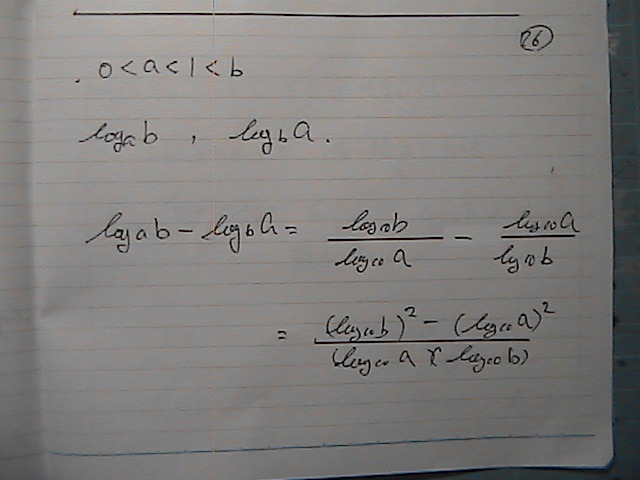 26
0 < a < 1 < b
log_a b , log_b a .
log_a b − log_b a = \frac{log_{10} b}{log_{10} a} − \frac{log_{10} a}{log_{10} b}
= \frac{(log_{10} b)^2 − (log_{10} a)^2}{(log_{10} a)(log_{10} b)}